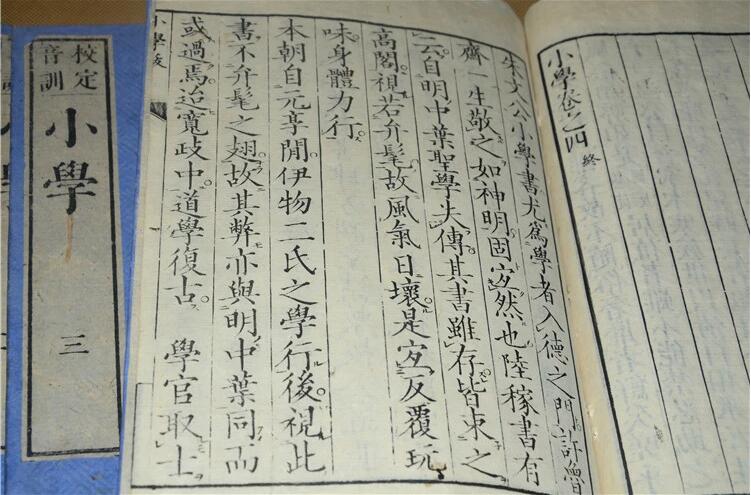 小學卷之四 終
朱文公小學書尤爲學者入德之門許魯
齊一生敬之如神明固宜然也陸稼書有
云自明中葉聖學失傳其書雖存皆束之
高閣視若弁髦故風氣日壞是宜反覆玩
味身體力行
本朝自元享閒伊物二氏之學行後視此
書不弁髦之翅故其弊亦與明中葉同而
或過焉迨寬政中道學復古 學官取士
小學跋
校定
音訓
小學
三